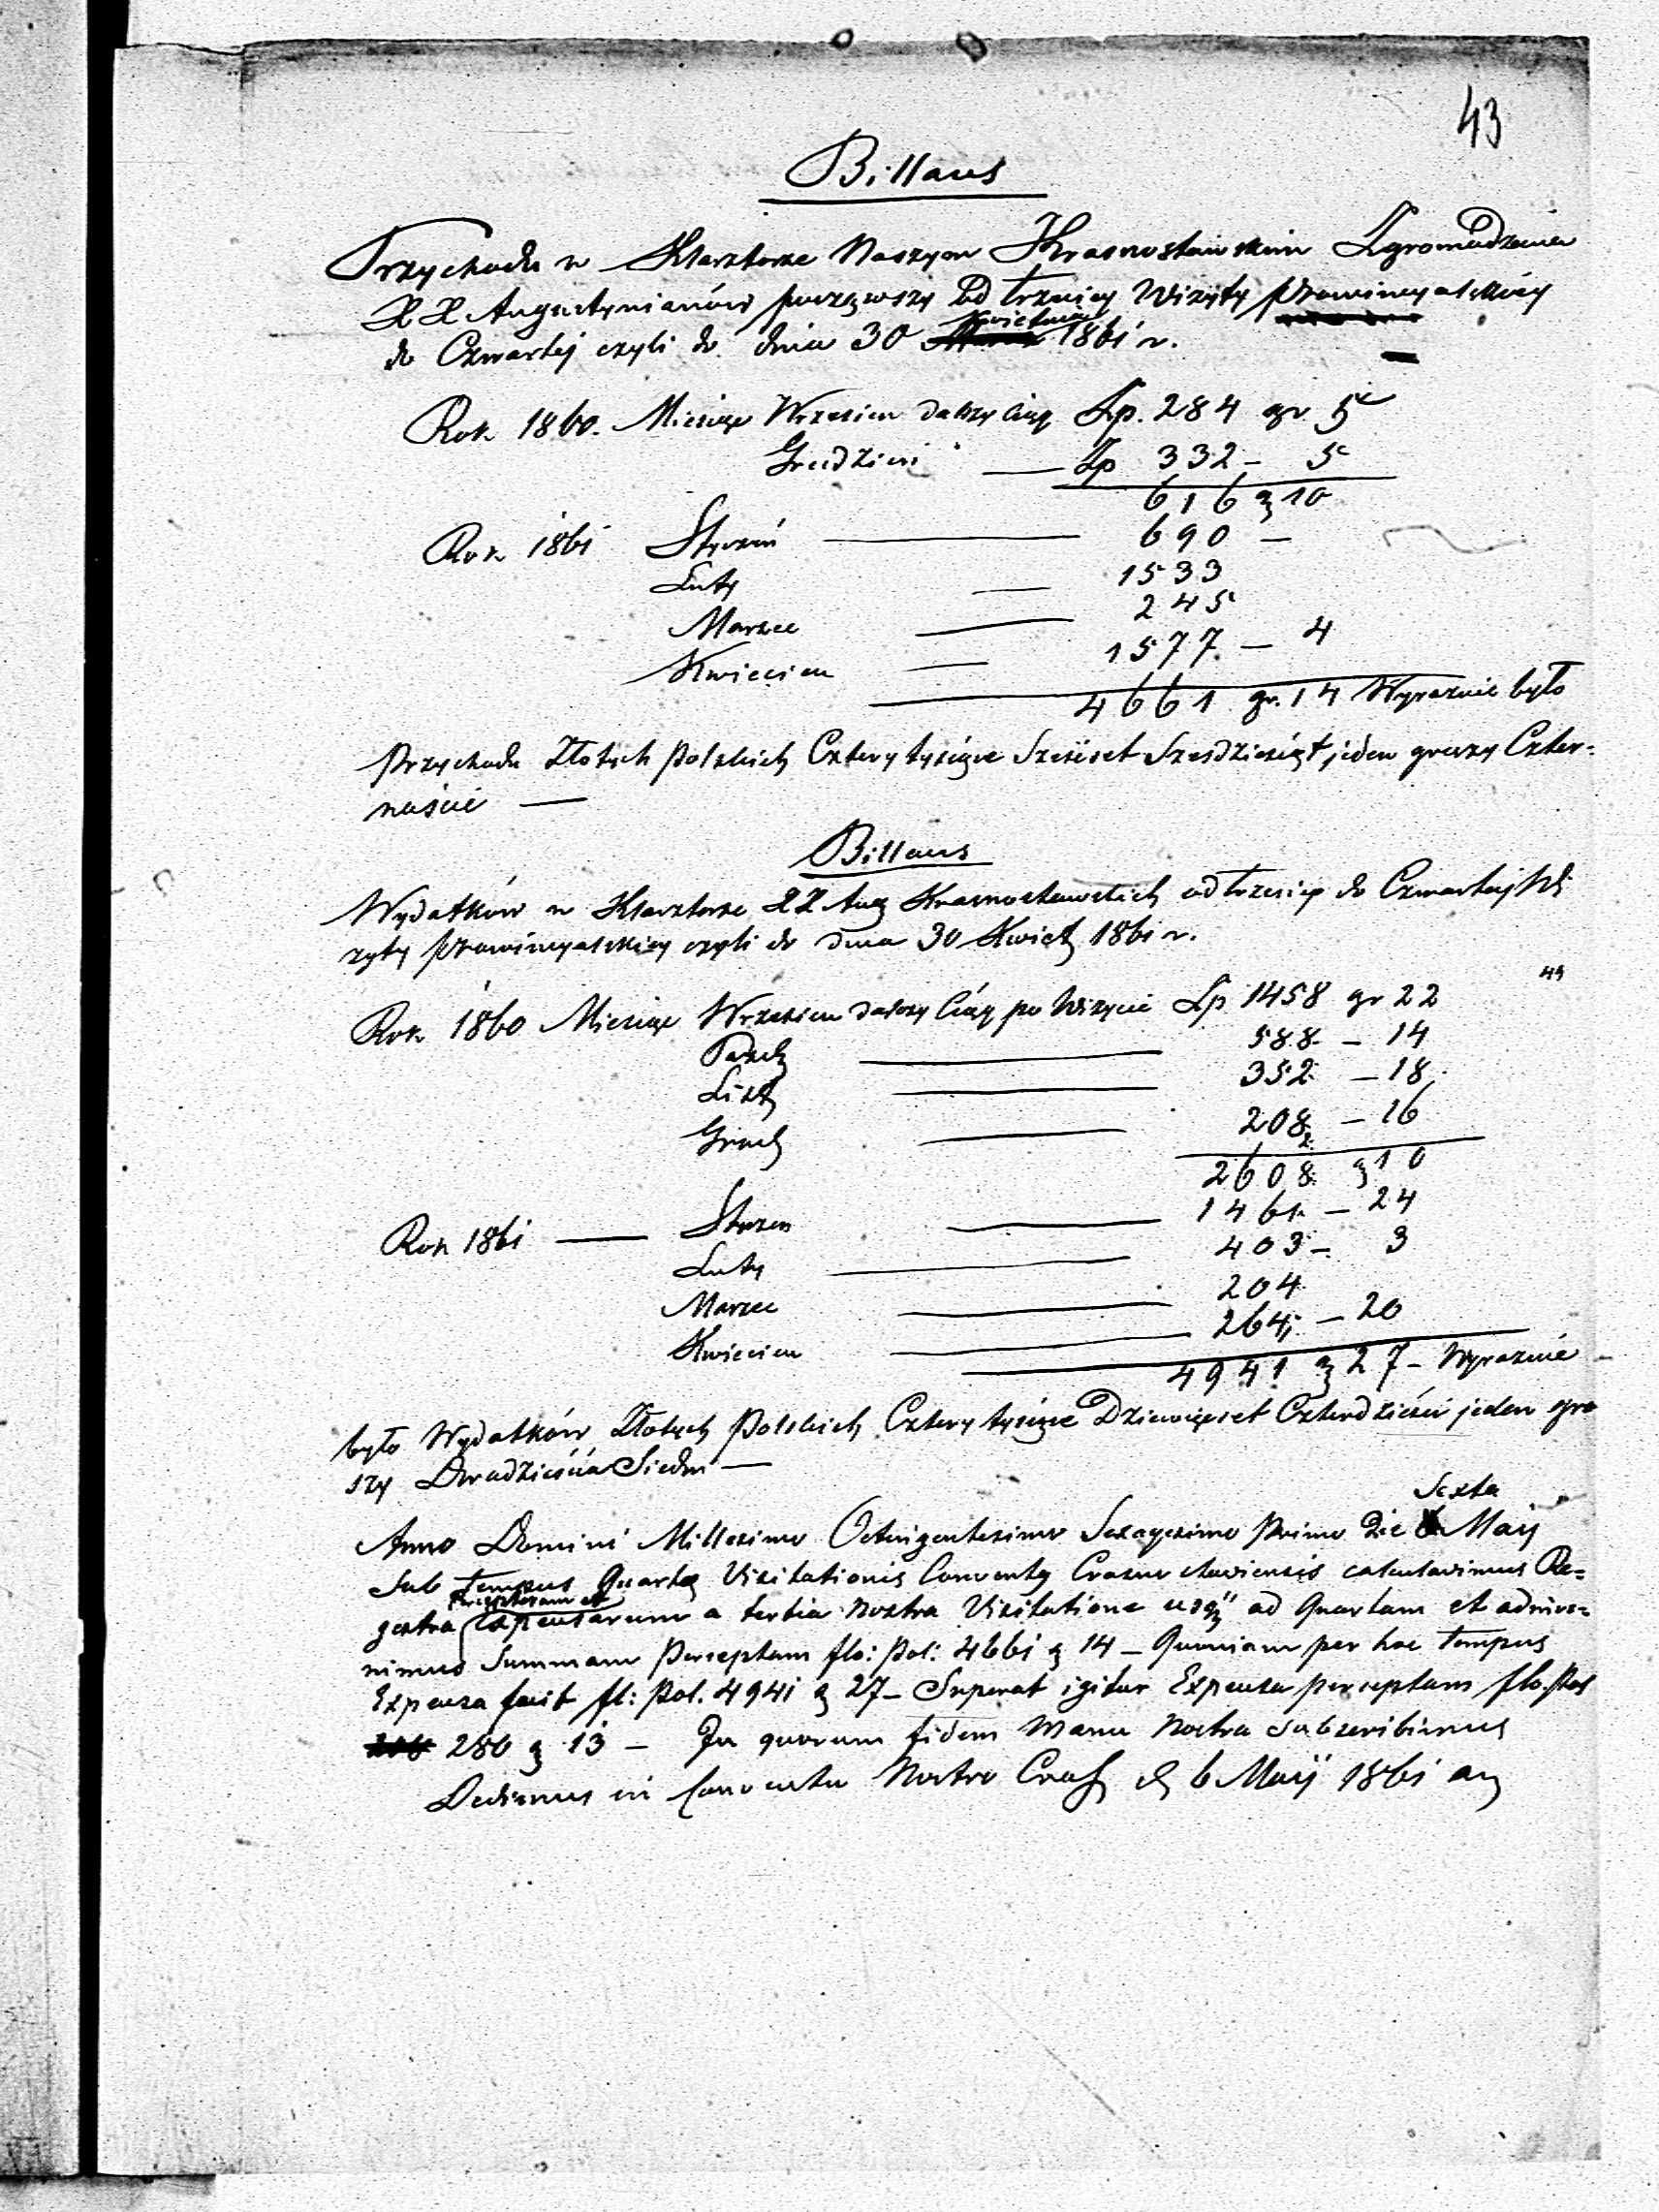 43
Billans
Przychodu w Klasztorze Naszym Krasnostawskim Zgromadzenia
XX Augustynianów począwszy od trzeciej Wizyty Prowincyalskiéy
do Czwartéj czyli do dnia 30 Kwietnia 1861 r.
Rok 1860. Miesiąc Wrzesien dalszy ciąg Zp. 284 gr 5
Grudzień — Zp 332 – 5
616 g 10
Rok 1861 Styczeń — 690 —
Luty — 1533
Marzec — 245
Kwiecien — 1577 — 4
4661 gr. 14 Wyraznie było
Przychodu Złotych Polskich Cztery tysiące Sześćset Sześdziesiąt jeden groszy Czter=
naście —
Billans
Wydatków w Klasztorze XX Aug Krasnostawskich od trzeciey do Czwartej Wi
zyty Prowincyalskiey czyli do dnia 30 Kwiet 1861 r.
43
Rok 1860 Miesiąc Wrzesien dalszy Ciąg po Wizycie Zp 1458 gr 22
Pazdz — 588 – 14
List — 352 – 18
Grud — 208 – 16
2608 g 10
Rok 1861 — Styczen — 1461 – 24
Luty — 403 – 3
Marzec — 204
Kwiecien — 264 – 20
4941 g 27 – Wyraznie
było Wydatków Złotych Polskich Cztery tysiące Dziewięcset Czterdzieści jeden gro
szy Dwadzieścia Siedm —
Sexta
Anno Domini Millesimo Octuigentesimo Sexagesimo Primo die Maij
Sub Tempus Quarta Visitationis Conventus Crasnostaviensis calculavimus Re=
Perceptarum et
gestra expensarum a tertia Nostra Visitatione usq ad Quartam et adinve=
nimus Summam Perceptam flo: Pol: 4661 g 14 – Quoniam per hoc Tempus
Expensa facit fl: Pol. 4941 g 27 – Superat igitur Expensa perceptam flo. Pol
280 g 13 – In quorum fidem Manu Nostra Subscribimus
Dedimus in Conventu Nostro Cras d 6 Maij 1861 a